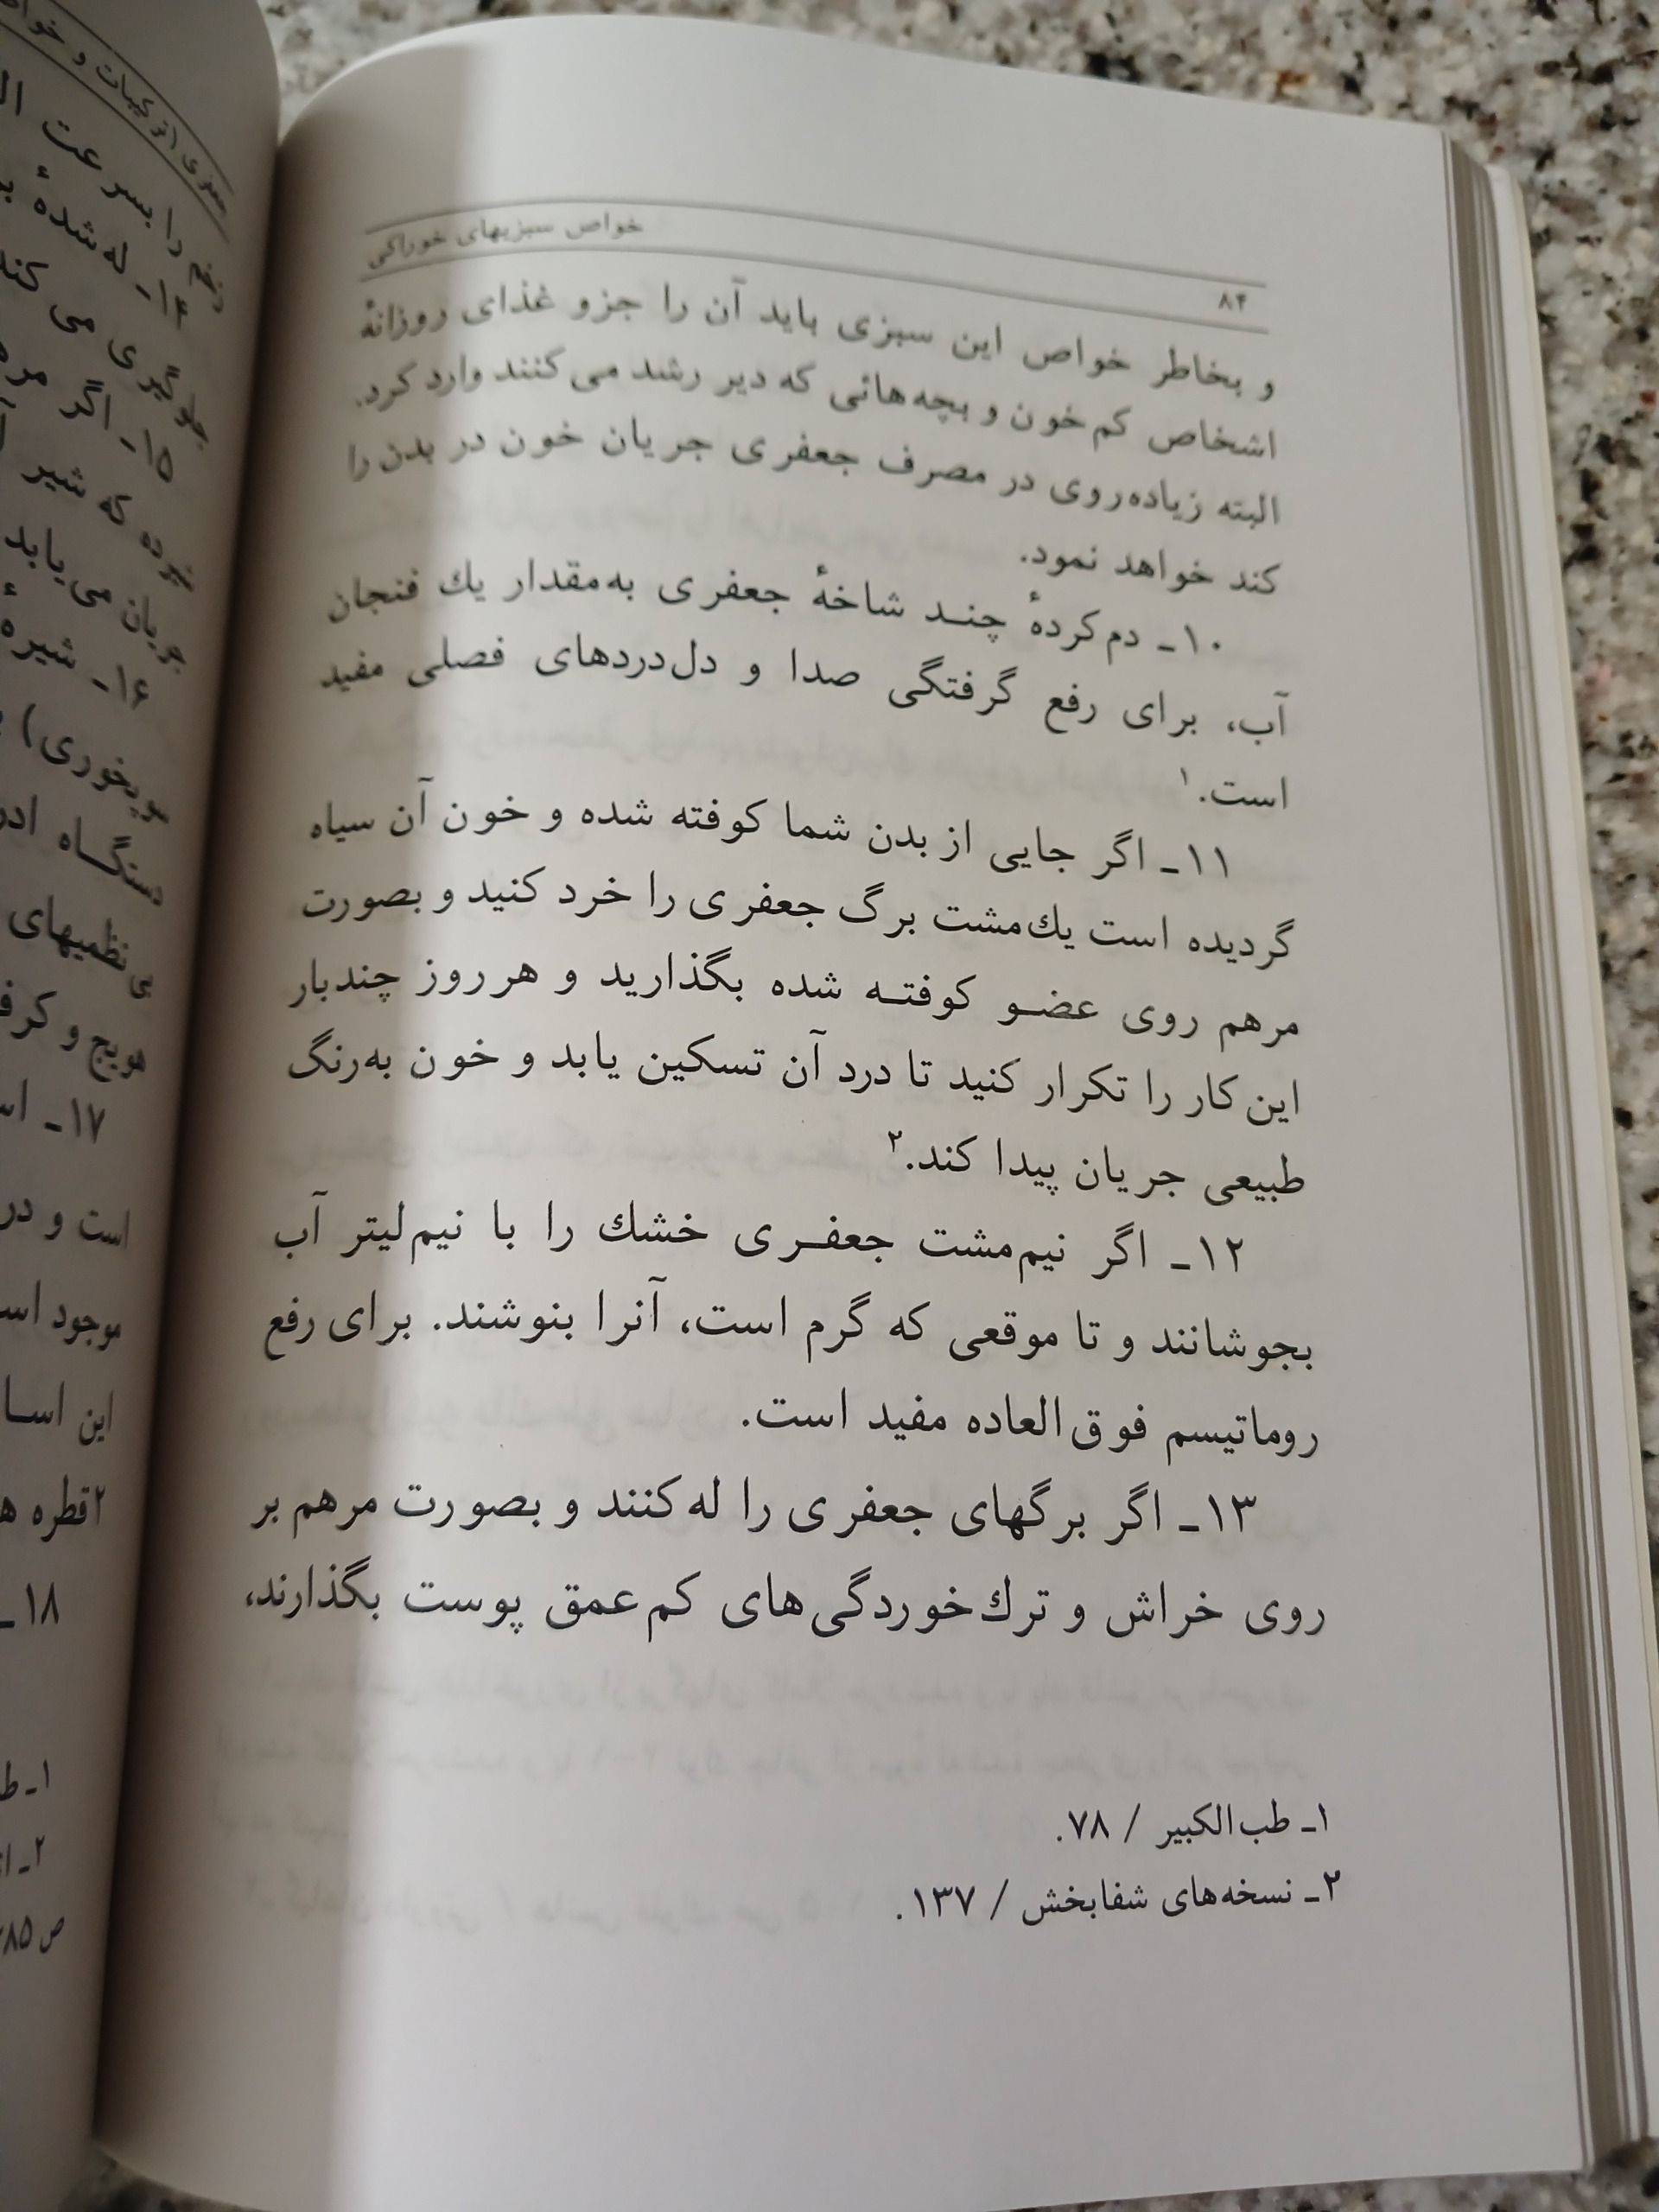 خواص سبزیهای خوراکی
۸۴
و بخاطر خواص این سبزی باید آن را جزو غذای روزانهٔ
اشخاص کم‌خون و بچه‌هائی که دیر رشد می‌کنند وارد کرد.
البته زیاده‌روی در مصرف جعفری جریان خون در بدن را
کند خواهد نمود.
۱۰ـ دم‌کردهٔ چنـد شاخهٔ جعفری به‌مقدار یك فنجان
آب، برای رفع گرفتگی صدا و دل‌دردهای فصلی مفید
است.۱
۱۱ـ اگر جایی از بدن شما کوفته شده و خون آن سیاه
گردیده است یك‌مشت برگ جعفری را خرد کنید و بصورت
مرهم روی عضـو کوفتـه شده بگذارید و هر روز چندبار
این‌کار را تکرار کنید تا درد آن تسکین یابد و خون به‌رنگ
طبیعی جریان پیدا کند.۲
۱۲ـ اگر نیم‌مشت جعفـری خشك را با نیم‌لیتر آب
بجوشانند و تا موقعی که گرم است، آنرا بنوشند. برای رفع
روماتیسم فوق‌العاده مفید است.
۱۳ـ اگر برگهای جعفری را له‌کنند و بصورت مرهم بر
روی خراش و ترك‌خوردگی‌های کم‌عمق پوست بگذارند،
۱ـ طب‌الکبیر / ۷۸.
۲ـ نسخه‌های شفابخش / ۱۳۷.
را بسرعت
۱۴ـ له‌شدهٔ
جلوگیری می‌کند
۱۵ـ اگر
که شیر
جریان می‌یابد
۱۶ـ شیرهٔ
دستگـاه
نظمیهای
هویج و
۱۷ـ
است و در
موجود
این
۲قطره
۱۸ـ
۱ـ
۲ـ
ص